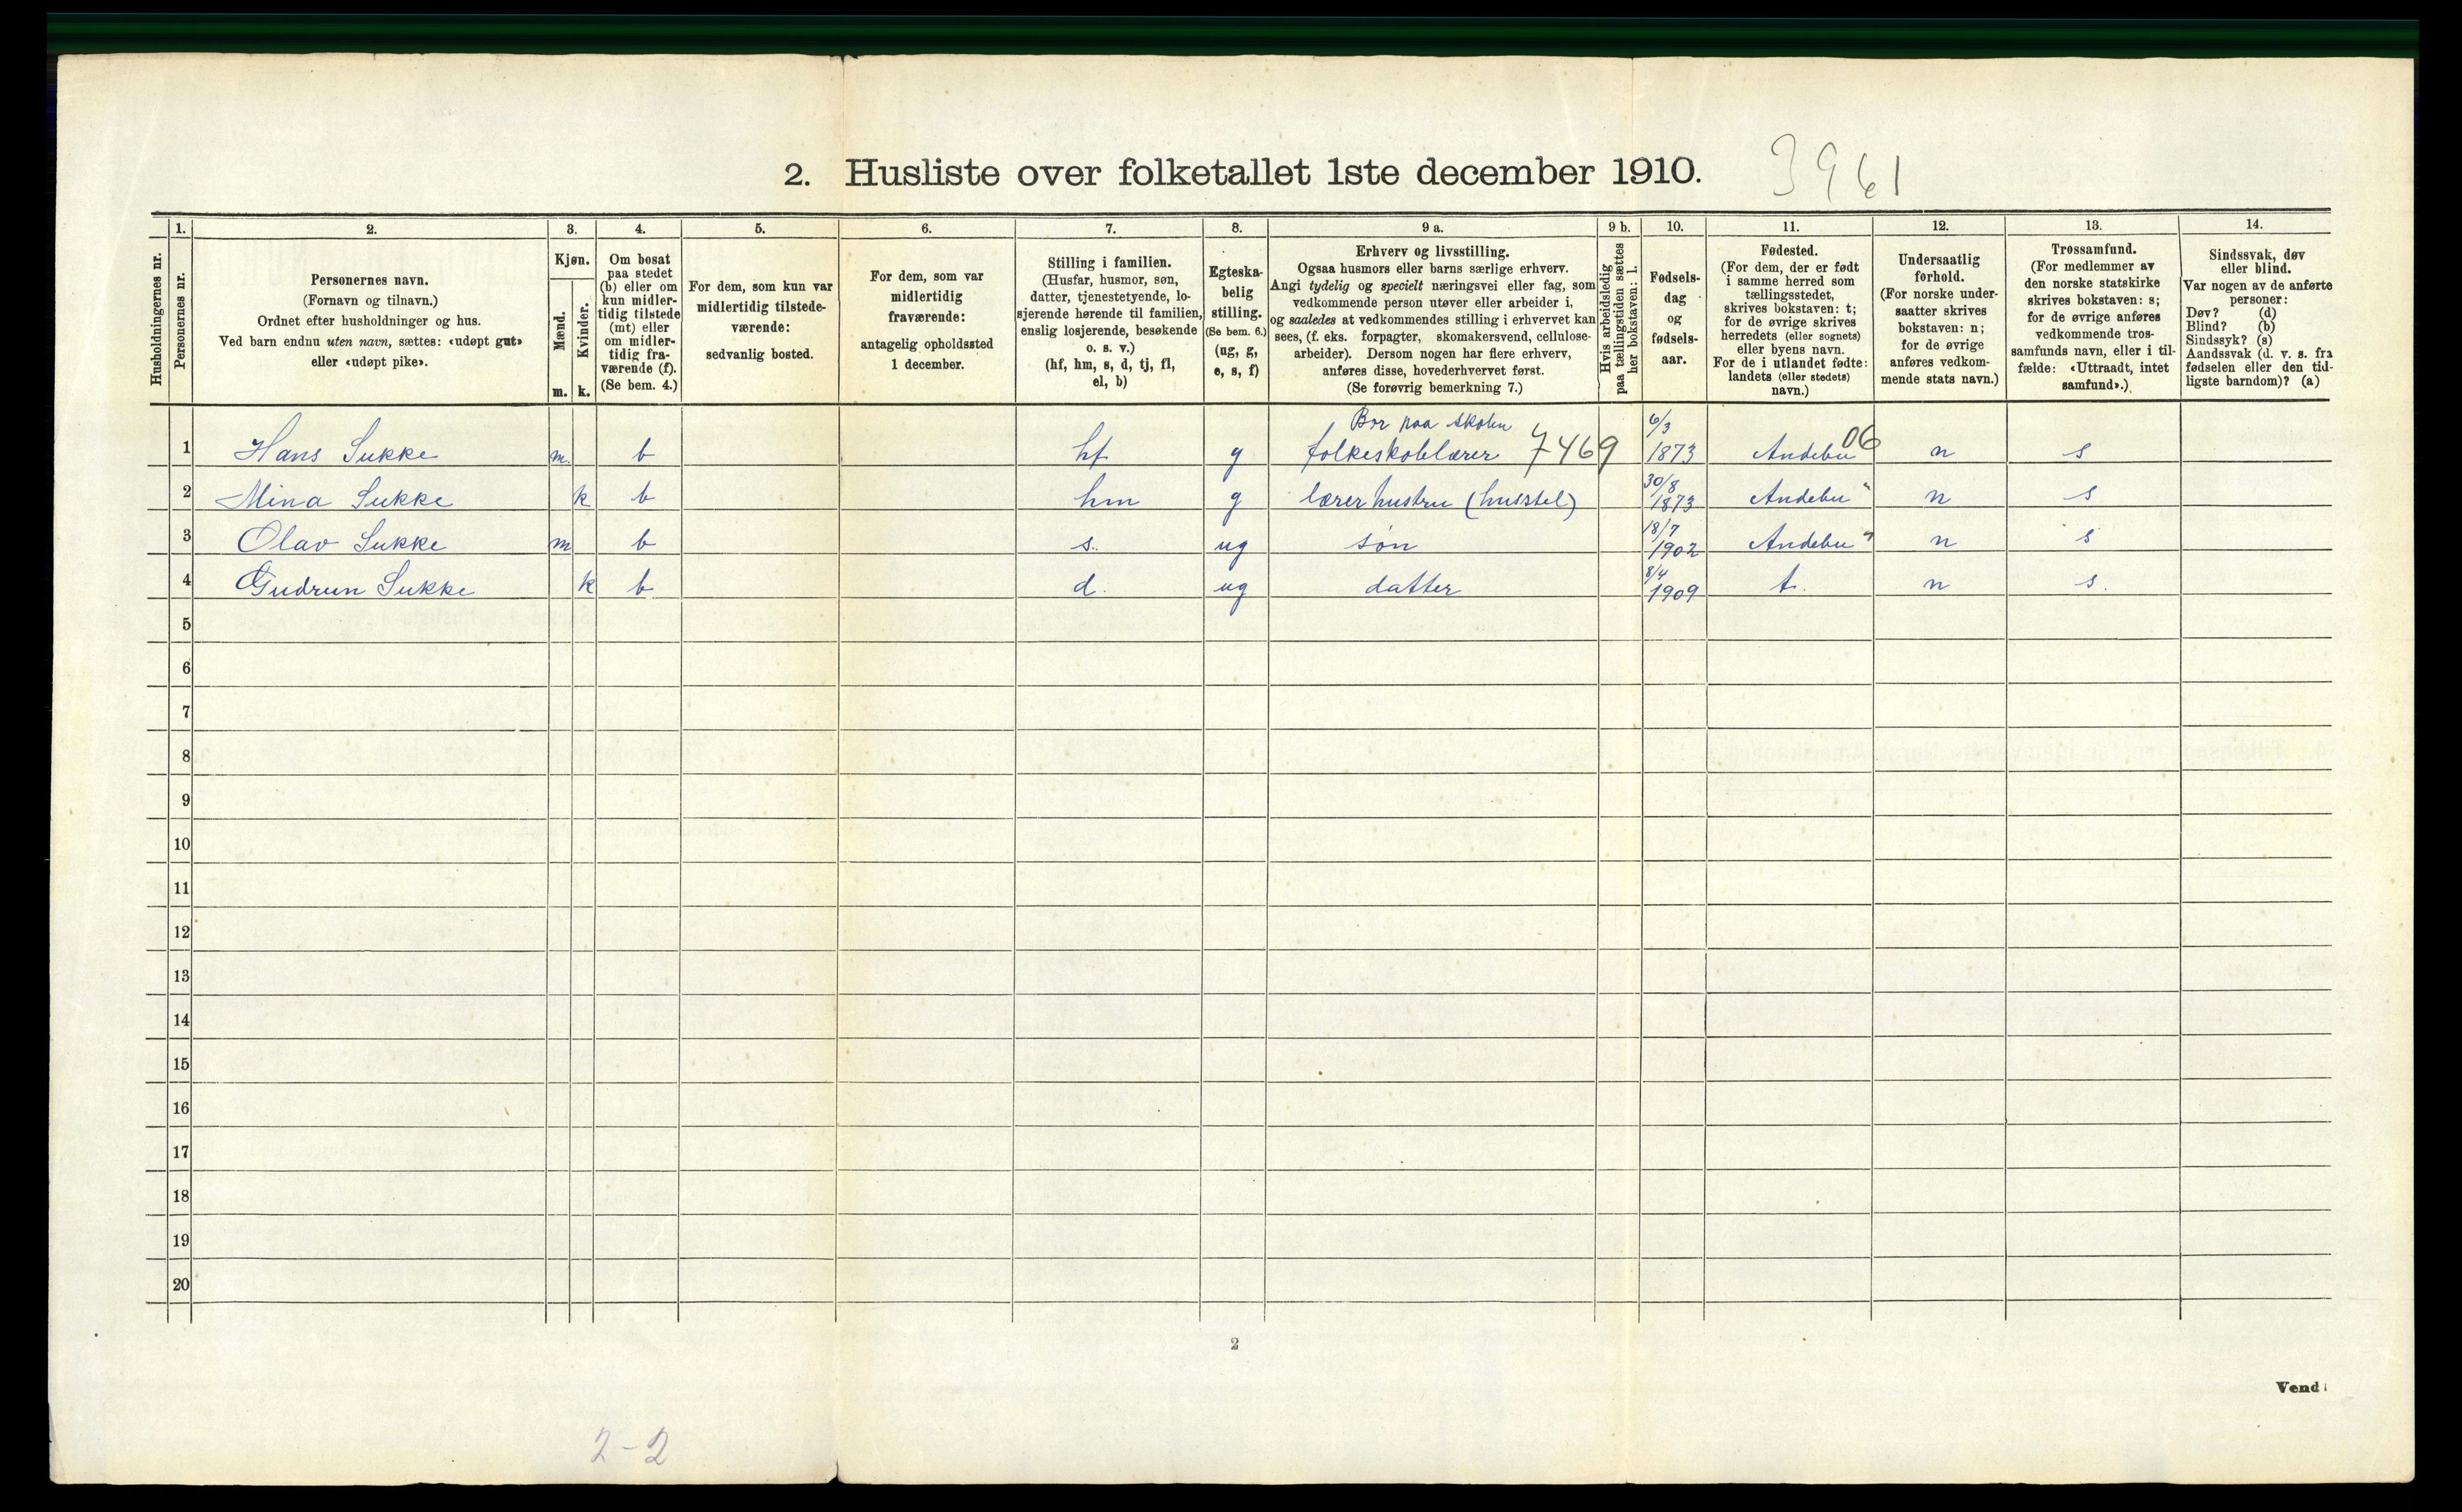 2. Husliste over folketallet 1ste december 1910.
3961
Husholdningernes nr.
1.
Personernes nr.
2.
Personernes navn.
(Fornavn og tilnavn.)
Ordnet efter husholdninger og hus.
Ved barn endnu uten navn, sættes: «udøpt gut»
eller «udøpt pike».
3.
Kjøn.
Mænd.
Kvinder.
m. k.
4.
Om bosat
paa stedet
(b) eller om
kun midler-
tidig tilstede
(mt) eller
om midler-
tidig fra-
værende (f).
(Se bem. 4.)
5.
For dem, som kun var
midlertidig tilstede-
værende:
sedvanlig bosted.
6.
For dem, som var
midlertidig
fraværende:
antagelig opholdssted
1 december.
7.
Stilling i familien.
(Husfar, husmor, søn,
datter, tjenestetyende, lo-
sjerende hørende til familien,
enslig losjerende, besøkende
o. s. v.)
(hf, hm, s, d, tj, fl,
el, b)
8.
Egteska-
belig
stilling.
(Se bem. 6.)
(ug, g,
e, s, f)
9 a.
Erhverv og livsstilling.
Ogsaa husmors eller barns særlige erhverv.
Angi tydelig og specielt næringsvei eller fag, som
vedkommende person utøver eller arbeider i,
og saaledes at vedkommendes stilling i erhvervet kan
sees, (f. eks. forpagter, skomakersvend, cellulose-
arbeider). Dersom nogen har flere erhverv,
anføres disse, hovederhvervet først.
(Se forøvrig bemerkning 7.)
9 b.
Hvis arbeidsledig
paa tællingstiden sættes
her bokstaven: l.
10.
Fødsels-
dag
og
fødsels-
aar.
11.
Fødested.
(For dem, der er født
i samme herred som
tællingsstedet,
skrives bokstaven: t;
for de øvrige skrives
herredets (eller sognets)
eller byens navn.
For de i utlandet fødte:
landets (eller stedets)
navn.)
12.
Undersaatlig
forhold.
(For norske under-
saatter skrives
bokstaven: n;
for de øvrige
anføres vedkom-
mende stats navn.)
13.
Trossamfund.
(For medlemmer av
den norske statskirke
skrives bokstaven: s;
for de øvrige anføres
vedkommende tros-
samfunds navn, eller i til-
fælde: «Uttraadt, intet
samfund».)
14.
Sindssvak, døv
eller blind.
Var nogen av de anførte
personer:
Døv? (d)
Blind? (b)
Sindssyk? (s)
Aandssvak (d. v. s. fra
fødselen eller den tid-
ligste barndom)? (a)
Bor paa skolen
1 Hans Sukke m. b hf g folkeskolelærer 7469 6/3 1873 Andebu 06 n s
2 Mina Sukke k b hm g lærerhustru (husstel) 30/8 1873 Andebu " n s
3 Olav Sukke m b s. ug søn 18/7 1902 Andebu " n s
4 Gudrun Sukke k b d. ug datter 8/4 1909 t. n s.
5
6
7
8
9
10
11
12
13
14
15
16
17
18
19
20
2
Vend
2-2